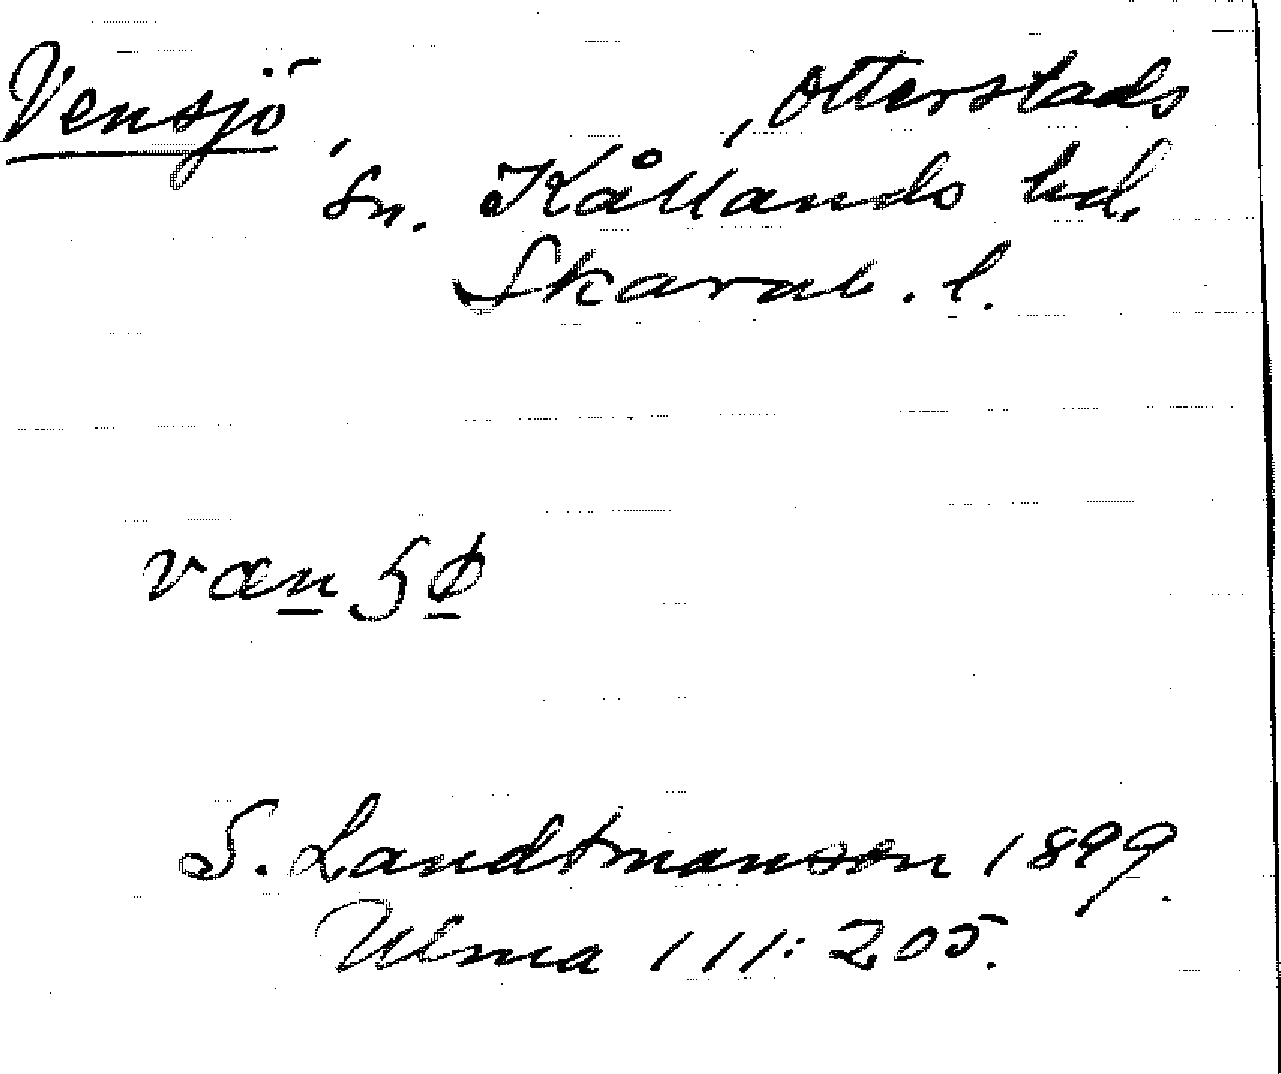 Vensjö, Otterstads
sn. Kållands hd.
Skarab. l.
S. Landtmanson 1899.
Ulma 111:205.